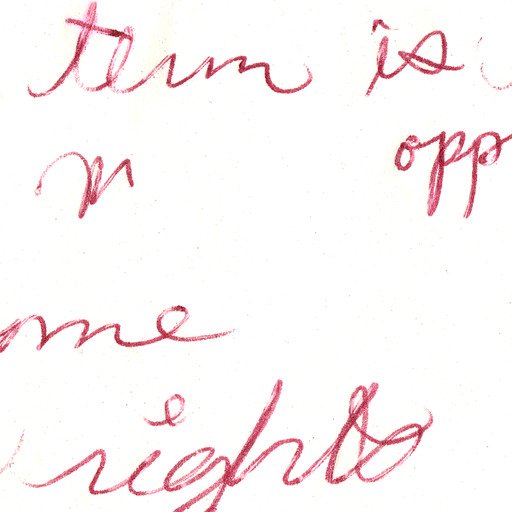 term is
m opp
me
rights